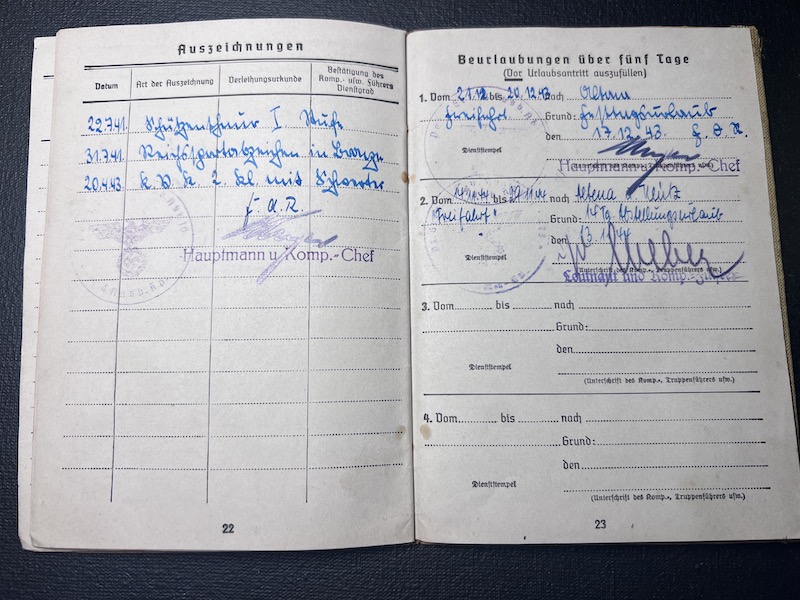 Auszeichnungen
Datum Art der Auszeichnung Verleihungsurkunde Bestätigung des Komp.- usw. Führers Dienstgrad
22.7.41. Schützenschnur I. Stufe
31.7.41. Reichssportabzeichen in Bronze
20.4.43. K.V.K. 2. Kl. mit Schwerter
F.d.R.
Hauptmann u. Komp.-Chef
22
Beurlaubungen über fünf Tage
(Vor Urlaubsantritt auszufüllen)
1. Vom 21.12 bis 20.12.43 nach Altena
Freifahrt Grund: Festungsurlaub
den 17.12.43. F.d.R.
Dienststempel
Hauptmann u. Komp.-Chef
2. Vom bis nach Altena u.
"Freifahrt" Grund:
den
Dienststempel
(Unterschrift des Komp.-, Truppenführers usw.)
Leutnant und Komp.-Führer
3. Vom bis nach
Grund:
den
Dienststempel
(Unterschrift des Komp.-, Truppenführers usw.)
4. Vom bis nach
Grund:
den
Dienststempel
(Unterschrift des Komp.-, Truppenführers usw.)
23